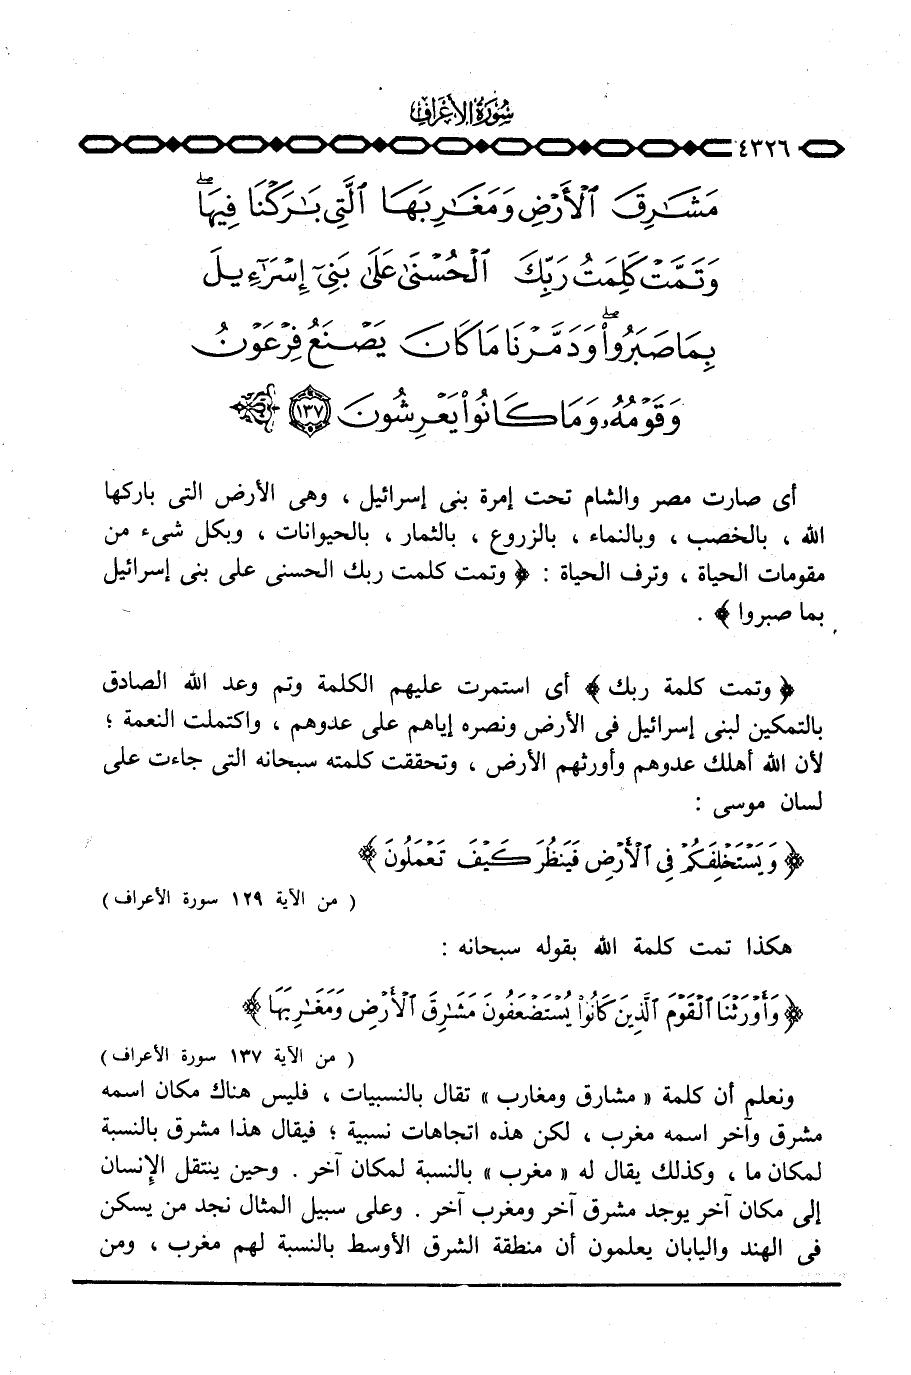 سُورَةُ الأَعْرَافِ
٤٣٢٦
مَشَٰرِقَ ٱلْأَرْضِ وَمَغَٰرِبَهَا ٱلَّتِى بَٰرَكْنَا فِيهَا ۖ
وَتَمَّتْ كَلِمَتُ رَبِّكَ ٱلْحُسْنَىٰ عَلَىٰ بَنِىٓ إِسْرَٰٓءِيلَ
بِمَا صَبَرُوا۟ ۖ وَدَمَّرْنَا مَا كَانَ يَصْنَعُ فِرْعَوْنُ
وَقَوْمُهُۥ وَمَا كَانُوا۟ يَعْرِشُونَ ١٣٧
أى صارت مصر والشام تحت إمرة بنى إسرائيل ، وهى الأرض التى باركها
الله ، بالخصب ، وبالنماء ، بالزروع ، بالثمار ، بالحيوانات ، وبكل شىء من
مقومات الحياة ، وترف الحياة : ﴿ وتمت كلمت ربك الحسنى على بنى إسرائيل
بما صبروا ﴾ .
﴿ وتمت كلمة ربك ﴾ أى استمرت عليهم الكلمة وتم وعد الله الصادق
بالتمكين لبنى إسرائيل فى الأرض ونصره إياهم على عدوهم ، واكتملت النعمة ؛
لأن الله أهلك عدوهم وأورثهم الأرض ، وتحققت كلمته سبحانه التى جاءت على
لسان موسى :
﴿ وَيَسْتَخْلِفَكُمْ فِى ٱلْأَرْضِ فَيَنظُرَ كَيْفَ تَعْمَلُونَ ﴾
( من الآية ١٢٩ سورة الأعراف )
هكذا تمت كلمة الله بقوله سبحانه :
﴿ وَأَوْرَثْنَا ٱلْقَوْمَ ٱلَّذِينَ كَانُوا۟ يُسْتَضْعَفُونَ مَشَٰرِقَ ٱلْأَرْضِ وَمَغَٰرِبَهَا ﴾
( من الآية ١٣٧ سورة الأعراف )
ونعلم أن كلمة « مشارق ومغارب » تقال بالنسبيات ، فليس هناك مكان اسمه
مشرق وآخر اسمه مغرب ، لكن هذه اتجاهات نسبية ؛ فيقال هذا مشرق بالنسبة
لمكان ما ، وكذلك يقال له « مغرب » بالنسبة لمكان آخر . وحين ينتقل الإنسان
إلى مكان آخر يوجد مشرق آخر ومغرب آخر . وعلى سبيل المثال نجد من يسكن
فى الهند واليابان يعلمون أن منطقة الشرق الأوسط بالنسبة لهم مغرب ، ومن